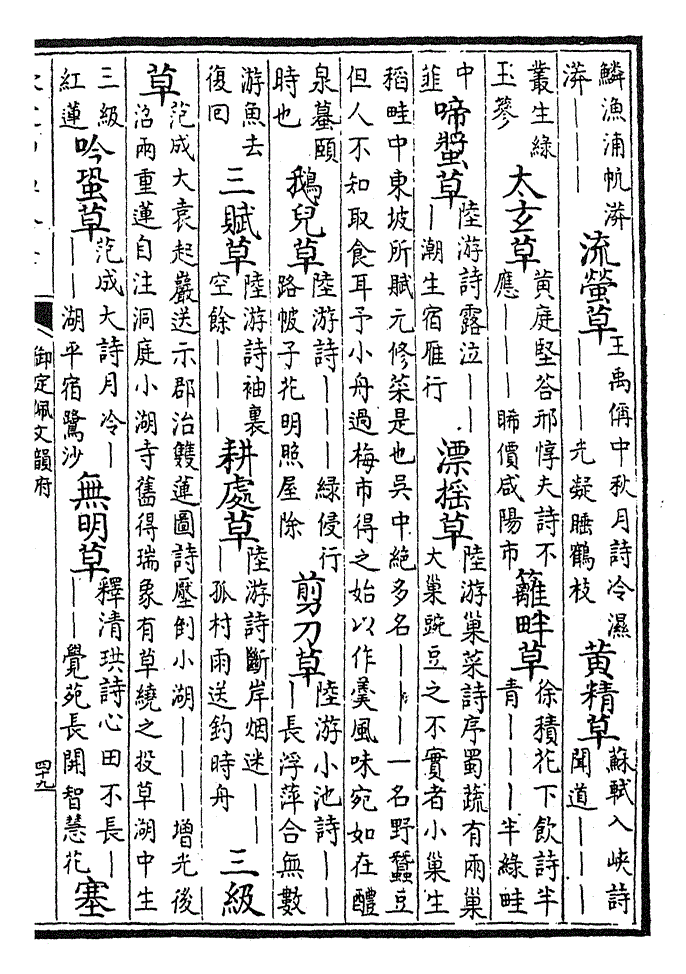 鱗漁浦帆漭
漭｜｜｜
流螢草
王禹偁中秋月詩冷濕
｜｜｜光凝睡鶴枝
黄精草
蘇軾入峽詩
聞道｜｜｜
叢生綠
玉篸
太玄草
黄庭堅答邢惇夫詩不
應｜｜｜睎價咸陽市
籬畔草
徐積花下飲詩半
青｜｜｜半綠畦
中
韭
啼螿草
陸游詩露泣｜｜
｜潮生宿雁行
漂摇草
陸游巢菜詩序蜀蔬有兩巢
大巢豌豆之不實者小巢生
稻畦中東坡所賦元修菜是也吳中絶多名｜｜｜一名野蠶豆
但人不知取食耳予小舟過梅市得之始以作羹風味宛如在醴
泉蟇頤
時也
鵝兒草
陸游詩｜｜｜綠侵行
路帔子花明照屋除
剪刀草
陸游小池詩｜｜
｜長浮萍合無數
游魚去
復回
三賦草
陸游詩袖裏
空餘｜｜｜
耕處草
陸游詩斷岸烟迷｜｜
｜孤村雨送釣時舟
三級
草
范成大袁起巖送示郡治雙蓮圖詩壓倒小湖｜｜｜增光後
沼兩重蓮自注洞庭小湖寺舊得瑞象有草繞之投草湖中生
三級
紅蓮
吟蛩草
范成大詩月冷｜
｜｜湖平宿鷺沙
無明草
釋清珙詩心田不長｜
｜｜覺苑長開智慧花
塞
御定佩文韻府
四十九